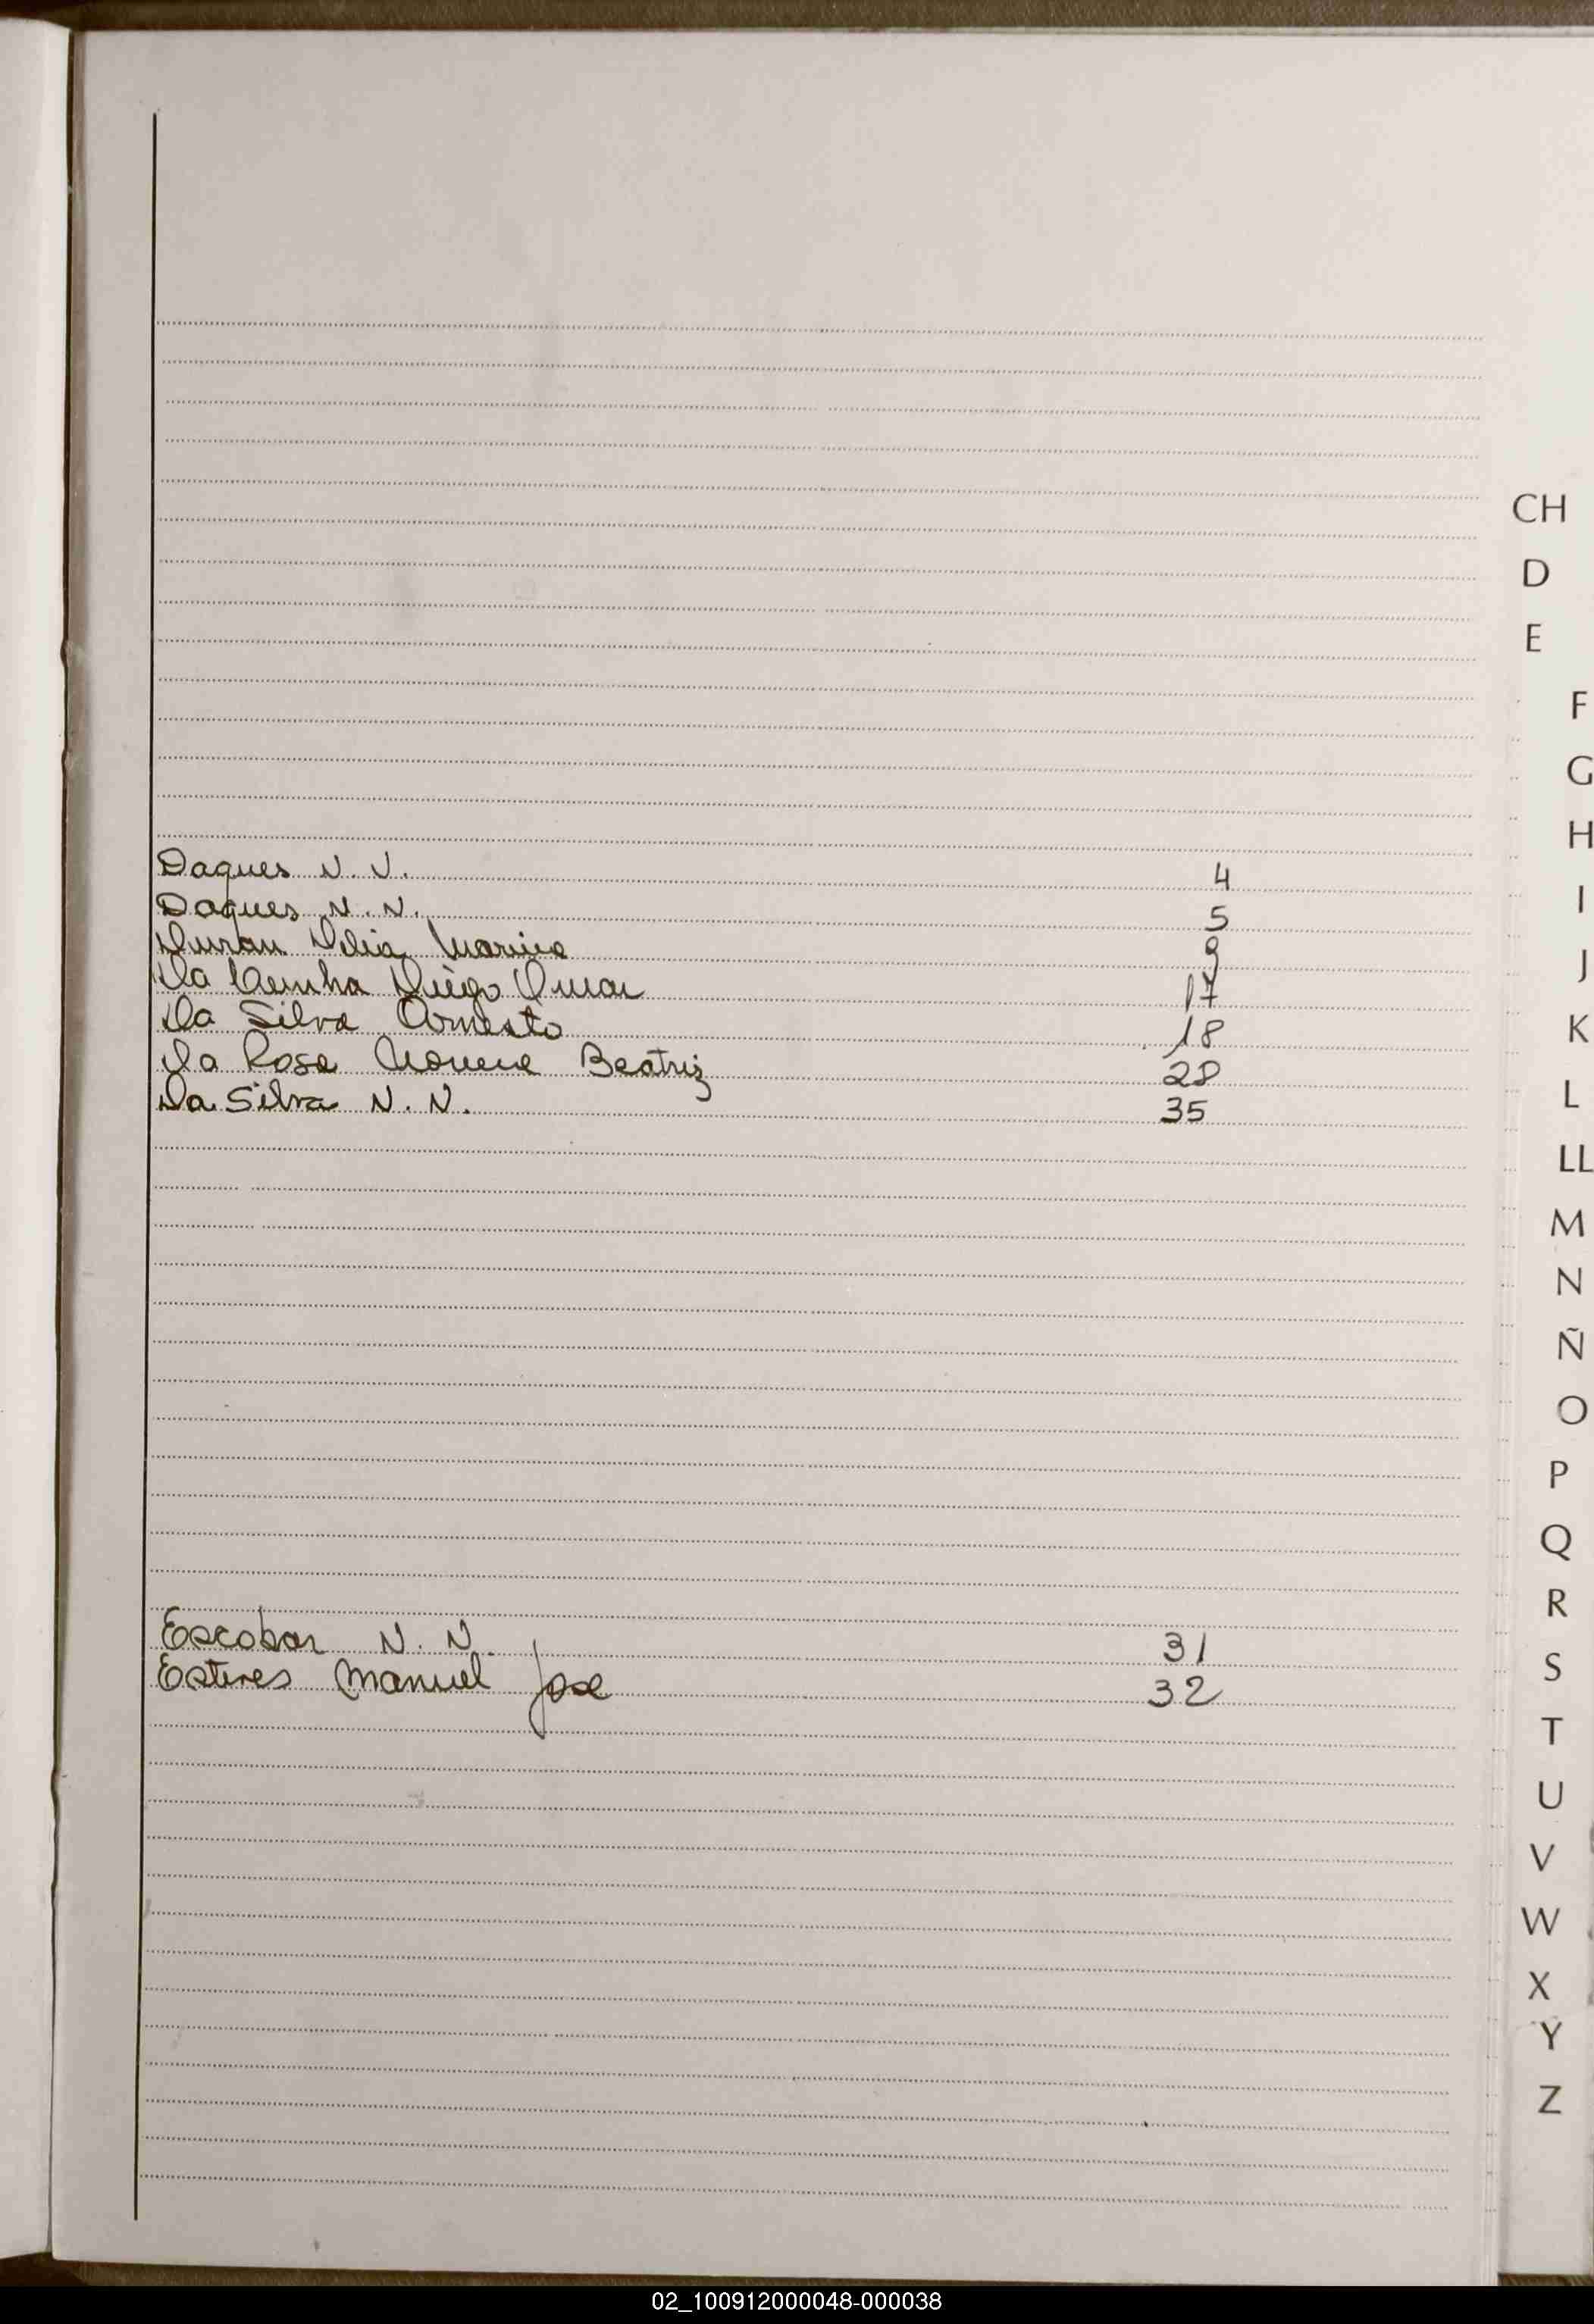 CH
D
E
F
G
H
I
J
K
L
LL
M
N
Ñ
O
P
Q
R
S
T
U
V
W
X
Y
Z
Daques N. N. 4
Daques N. N. 5
Duran Delia 9
Da Cunha Diego Omar 17
Da Silva Ernesto 18
Da Rosa Beatriz 28
Da Silva N. N. 35
Escobar N. N. 31
Esteves Manuel Jose 32
02_100912000048-000038